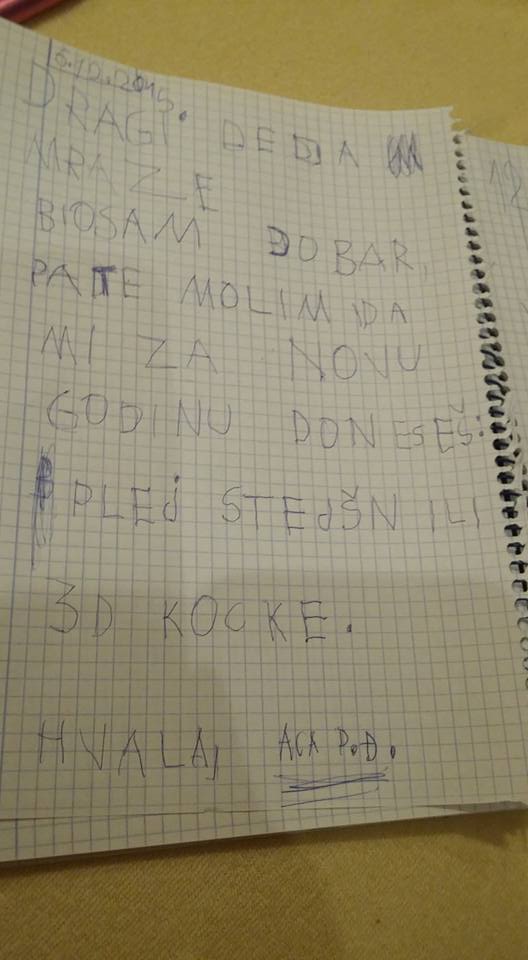 5.12.2016.
DRAGI DEDA
MRAZE
BIOSAM DOBAR,
PATE MOLIM DA
MI ZA NOVU
GODINU DONESEŠ:
PLEJ STEJŠN ILI
3D KOCKE.
HVALA, ACA P.Đ.
12